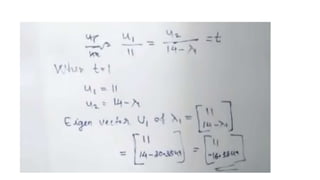 u₁/11 = u₂/14-λ₁ = t
When t=1
u₁ = 11
u₂ = 14-λ₁
Eigen vector U₁ of λ₁ = [11 14-λ₁]
= [11 14-30.3849] = [11 -16.3849]